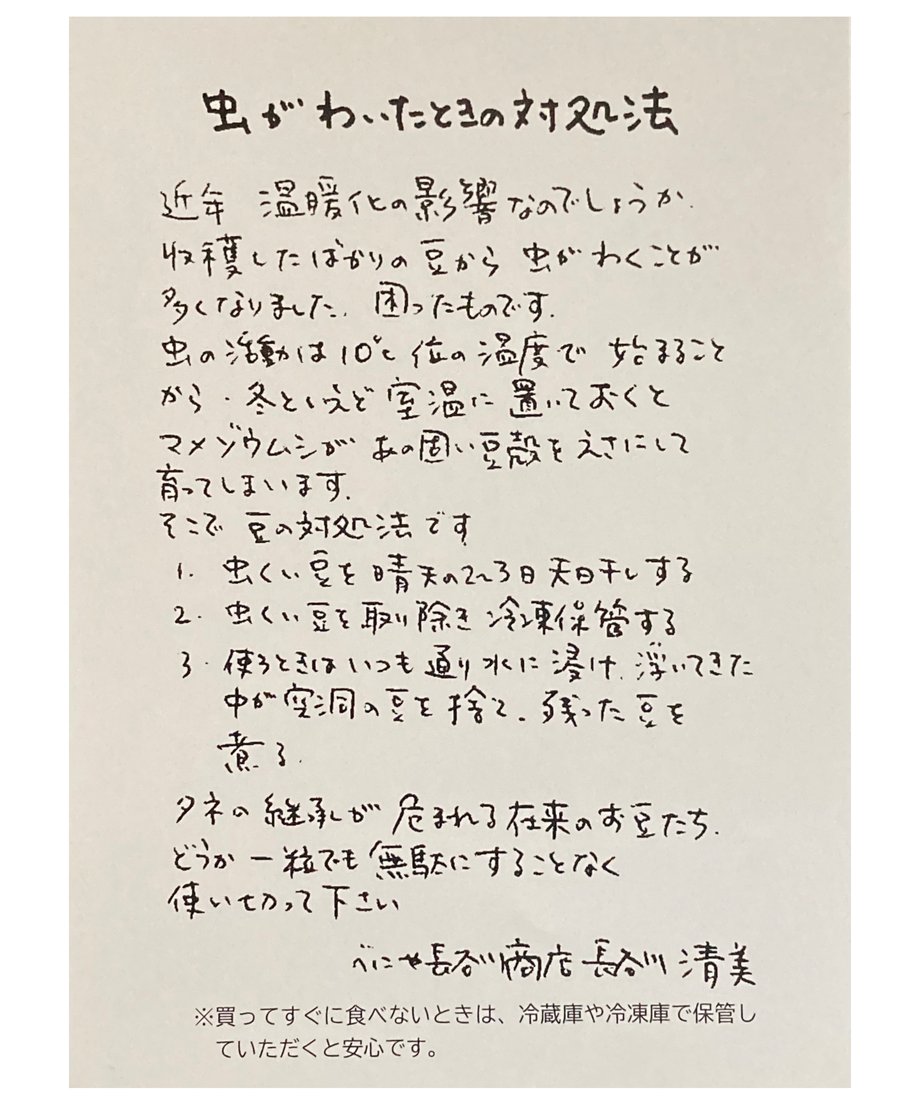 虫がわいたときの対処法
近年 温暖化の影響なのでしょうか.
収穫したばかりの豆から 虫がわくことが
多くなりました. 困ったものです.
虫の活動は10℃位の温度で 始まること
から. 冬といえど 室温に 置いておくと
マメゾウムシが あの固い豆殻をえさにして
育ってしまいます.
そこで 豆の対処法です
1. 虫くい豆を 晴天の2〜3日 天日干しする
2. 虫くい豆を取り除き 冷凍保管する
3. 使うときはいつも通り水に浸け. 浮いてきた
中が空洞の豆を捨て. 残った豆を
煮る.
タネの継承が 危まれる在来のお豆たち.
どうか 一粒でも無駄にすることなく
使い切って下さい
べにや長谷川商店 長谷川 清美
※買ってすぐに食べないときは、冷蔵庫や冷凍庫で保管し
ていただくと安心です。